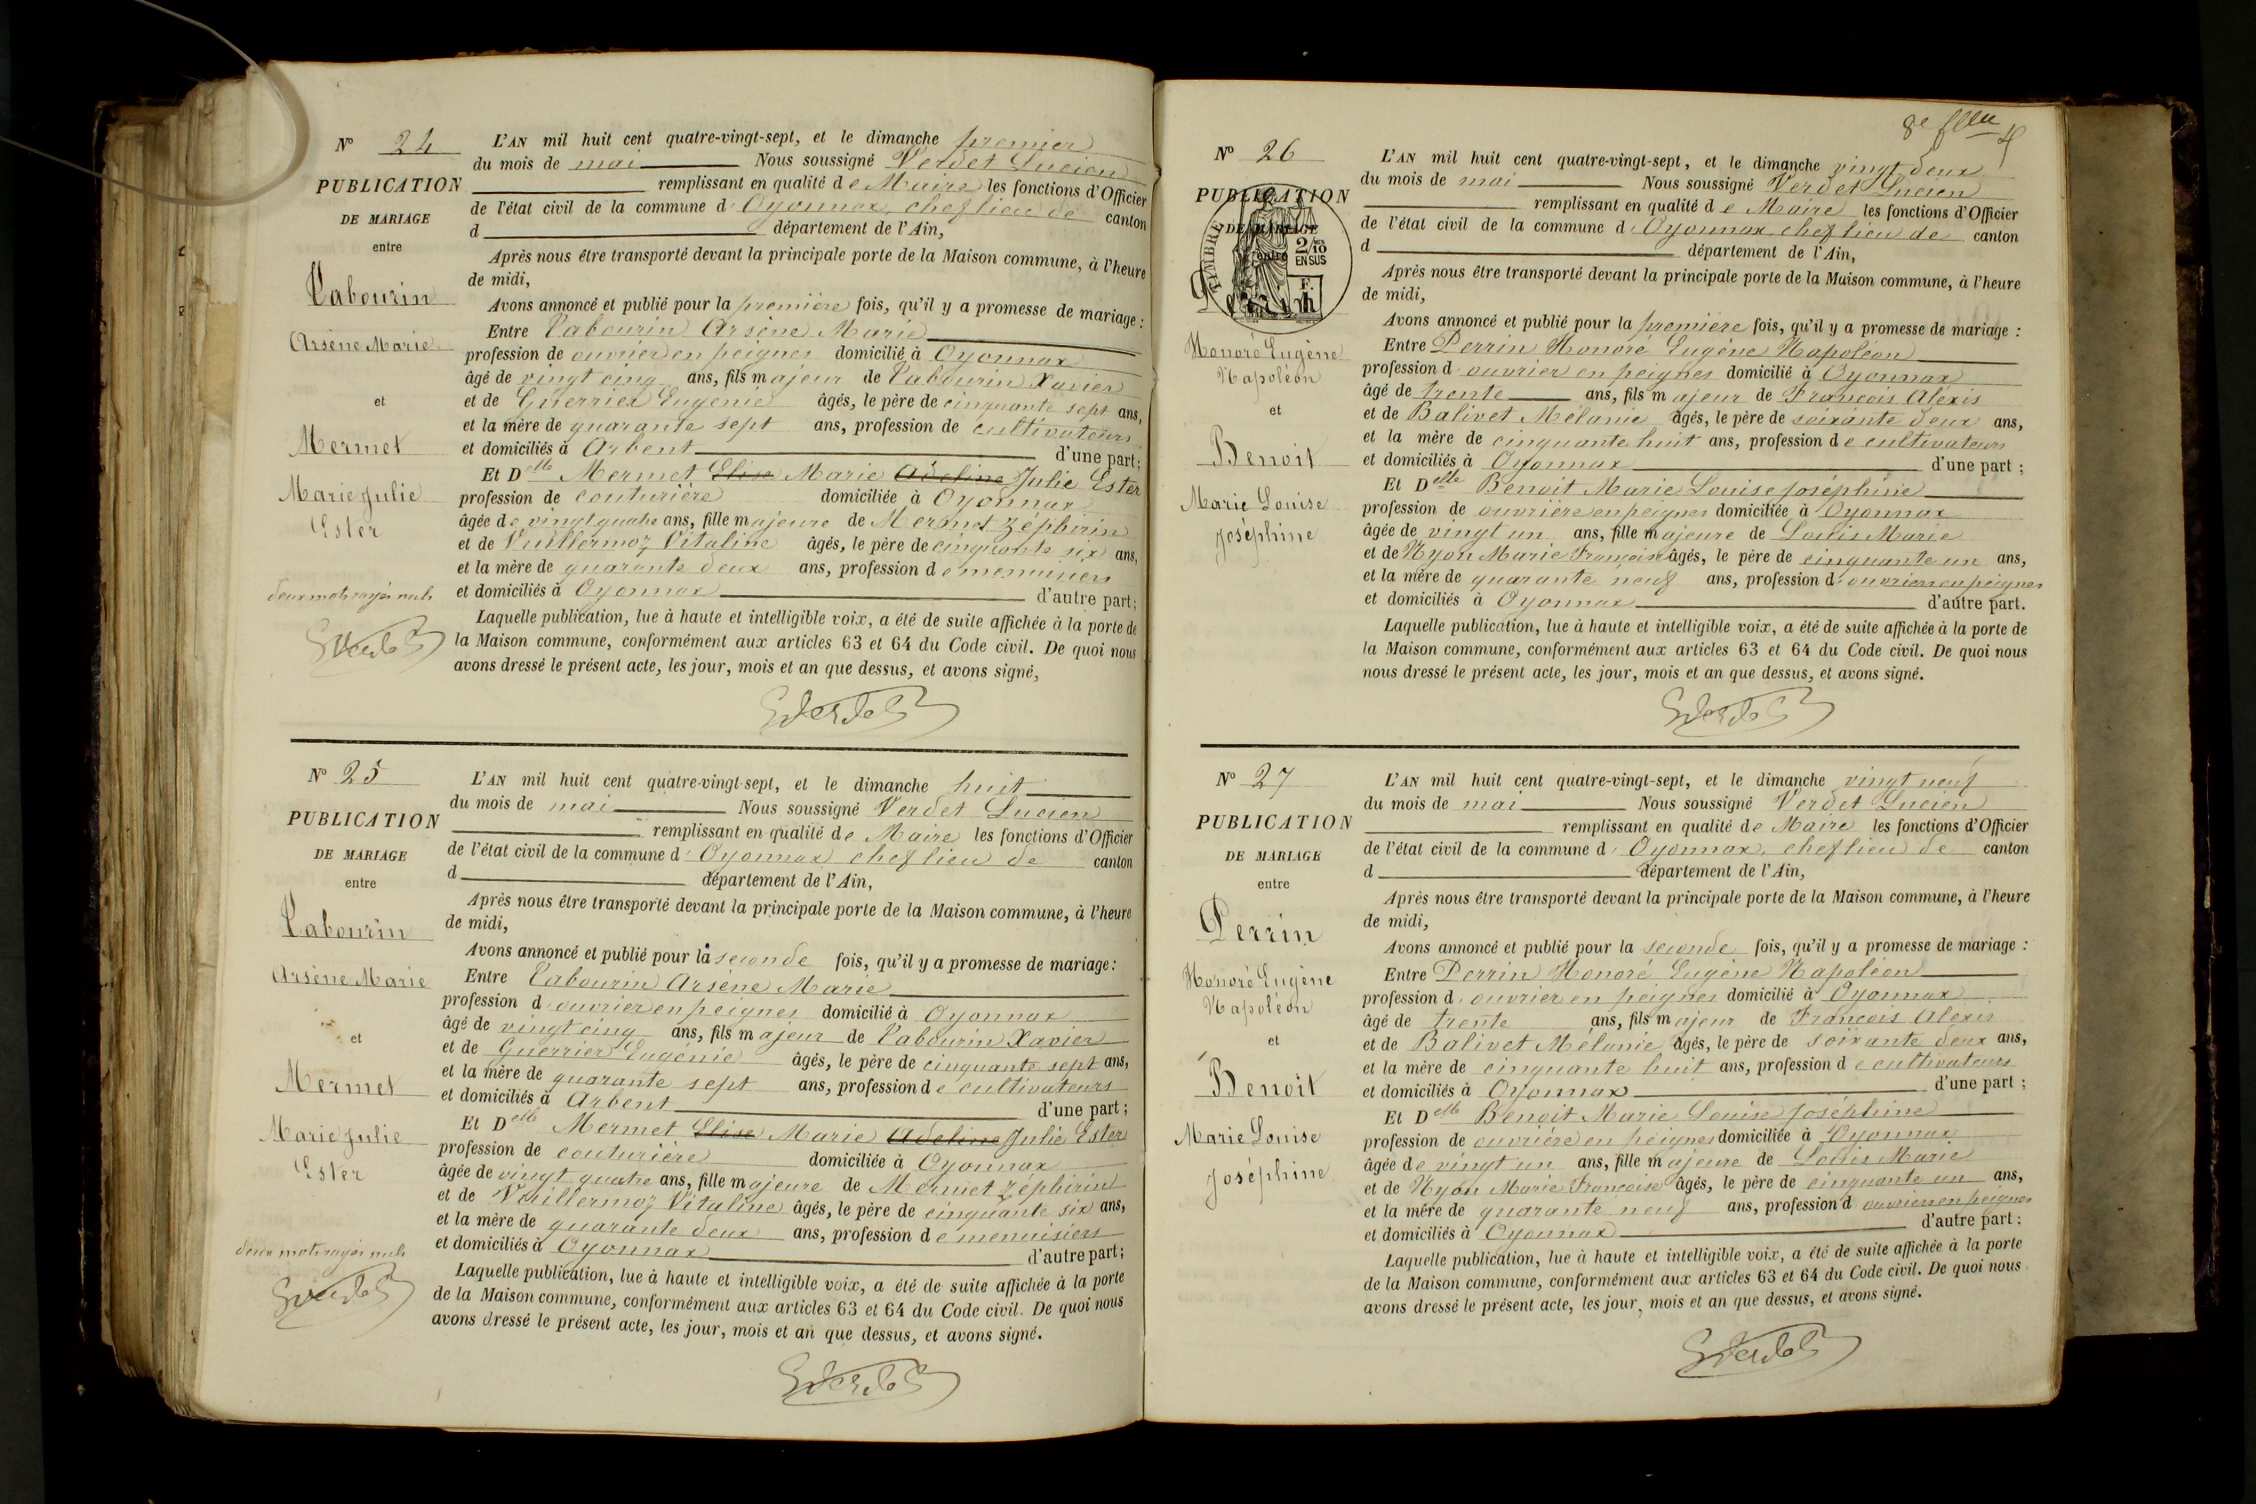 N° 24
PUBLICATION
DE MARIAGE
entre
Vabourin
Arsène Marie
et
Mermet
Marie Julie
Ester
deux mots rayés nuls
L'AN mil huit cent quatre-vingt-sept, et le dimanche premier
du mois de mai Nous soussigné Verdet Lucien
remplissant en qualité de Maire les fonctions d'Officier
de l'état civil de la commune d'Oyonnax, chef lieu de canton
d département de l'Ain,
Après nous être transporté devant la principale porte de la Maison commune, à l'heure
de midi,
Avons annoncé et publié pour la première fois, qu'il y a promesse de mariage :
Entre Vabourin Arsène Marie
profession de ouvrier en peignes domicilié à Oyonnax
âgé de vingt cinq ans, fils majeur de Vabourin Xavier
et de Guerrier Eugénie âgés, le père de cinquante sept ans,
et la mère de quarante sept ans, profession de cultivateurs
et domiciliés à Arbent d'une part;
Et Delle Mermet Elise Marie Adeline Julie Ester
profession de couturière domiciliée à Oyonnax
âgée de vingt quatre ans, fille majeure de Mermet Zéphirin
et de Vuillermoz Vitaline âgés, le père de cinquante six ans,
et la mère de quarante deux ans, profession de menuisiers
et domiciliés à Oyonnax d'autre part;
Laquelle publication, lue à haute et intelligible voix, a été de suite affichée à la porte de
la Maison commune, conformément aux articles 63 et 64 du Code civil. De quoi nous
avons dressé le présent acte, les jour, mois et an que dessus, et avons signé,
N° 25
PUBLICATION
DE MARIAGE
entre
Vabourin
Arsène Marie
et
Mermet
Marie Julie
Ester
deux mots rayés nuls
L'AN mil huit cent quatre-vingt-sept, et le dimanche huit
du mois de mai Nous soussigné Verdet Lucien
remplissant en qualité de Maire les fonctions d'Officier
de l'état civil de la commune d'Oyonnax chef lieu de canton
d département de l'Ain,
Après nous être transporté devant la principale porte de la Maison commune, à l'heure
de midi,
Avons annoncé et publié pour la seconde fois, qu'il y a promesse de mariage:
Entre Vabourin Arsène Marie
profession d'ouvrier en peignes domicilié à Oyonnax
âgé de vingt cinq ans, fils majeur de Vabourin Xavier
et de Guerrier Eugénie âgés, le père de cinquante sept ans,
et la mère de quarante sept ans, profession de cultivateurs
et domiciliés à Arbent d'une part;
Et Delle Mermet Elise Marie Adeline Julie Ester
profession de couturière domiciliée à Oyonnax
âgée de vingt quatre ans, fille majeure de Mermet Zéphirin
et de Vuillermoz Vitaline âgés, le père de cinquante six ans,
et la mère de quarante deux ans, profession de menuisiers
et domiciliés à Oyonnax d'autre part;
Laquelle publication, lue à haute et intelligible voix, a été de suite affichée à la porte
de la Maison commune, conformément aux articles 63 et 64 du Code civil. De quoi nous
avons dressé le présent acte, les jour, mois et an que dessus, et avons signé.
8e
N° 26
PUBLICATION
DE MARIAGE
entre
TIMBRE
2/10
EN SUS
Perrin
Honoré Eugène
Napoléon
et
Benoit
Marie Louise
Joséphine
L'AN mil huit cent quatre-vingt-sept, et le dimanche vingt deux
du mois de mai Nous soussigné Verdet Lucien
remplissant en qualité de Maire les fonctions d'Officier
de l'état civil de la commune d'Oyonnax chef lieu de canton
d département de l'Ain,
Après nous être transporté devant la principale porte de la Maison commune, à l'heure
de midi,
Avons annoncé et publié pour la première fois, qu'il y a promesse de mariage :
Entre Perrin Honoré Eugène Napoléon
profession d'ouvrier en peignes domicilié à Oyonnax
âgé de trente ans, fils majeur de François Alexis
et de Balivet Mélanie âgés, le père de soixante deux ans,
et la mère de cinquante huit ans, profession de cultivateurs
et domiciliés à Oyonnax d'une part ;
Et Delle Benoit Marie Louise Joséphine
profession de ouvrière en peignes domiciliée à Oyonnax
âgée de vingt un ans, fille majeure de Louis Marie
et de Nyon Marie Françoise âgés, le père de cinquante un ans,
et la mère de quarante neuf ans, profession d'ouvriers en peignes
et domiciliés à Oyonnax d'autre part.
Laquelle publication, lue à haute et intelligible voix, a été de suite affichée à la porte de
la Maison commune, conformément aux articles 63 et 64 du Code civil. De quoi nous
nous dressé le présent acte, les jour, mois et an que dessus, et avons signé.
N° 27
PUBLICATION
DE MARIAGE
entre
Perrin
Honoré Eugène
Napoléon
et
Benoit
Marie Louise
Joséphine
L'AN mil huit cent quatre-vingt-sept, et le dimanche vingt neuf
du mois de mai Nous soussigné Verdet Lucien
remplissant en qualité de Maire les fonctions d'Officier
de l'état civil de la commune d'Oyonnax, chef lieu de canton
d département de l'Ain,
Après nous être transporté devant la principale porte de la Maison commune, à l'heure
de midi,
Avons annoncé et publié pour la seconde fois, qu'il y a promesse de mariage :
Entre Perrin Honoré Eugène Napoléon
profession d'ouvrier en peignes domicilié à Oyonnax
âgé de trente ans, fils majeur de François Alexis
et de Balivet Mélanie âgés, le père de soixante deux ans,
et la mère de cinquante huit ans, profession de cultivateurs
et domiciliés à Oyonnax d'une part ;
Et Delle Benoit Marie Louise Joséphine
profession de ouvrière en peignes domiciliée à Oyonnax
âgée de vingt un ans, fille majeure de Louis Marie
et de Nyon Marie Françoise âgés, le père de cinquante un ans,
et la mère de quarante neuf ans, profession d ouvriers en peignes
et domiciliés à Oyonnax d'autre part ;
Laquelle publication, lue à haute et intelligible voix, a été de suite affichée à la porte
de la Maison commune, conformément aux articles 63 et 64 du Code civil. De quoi nous
avons dressé le présent acte, les jour, mois et an que dessus, et avons signé.